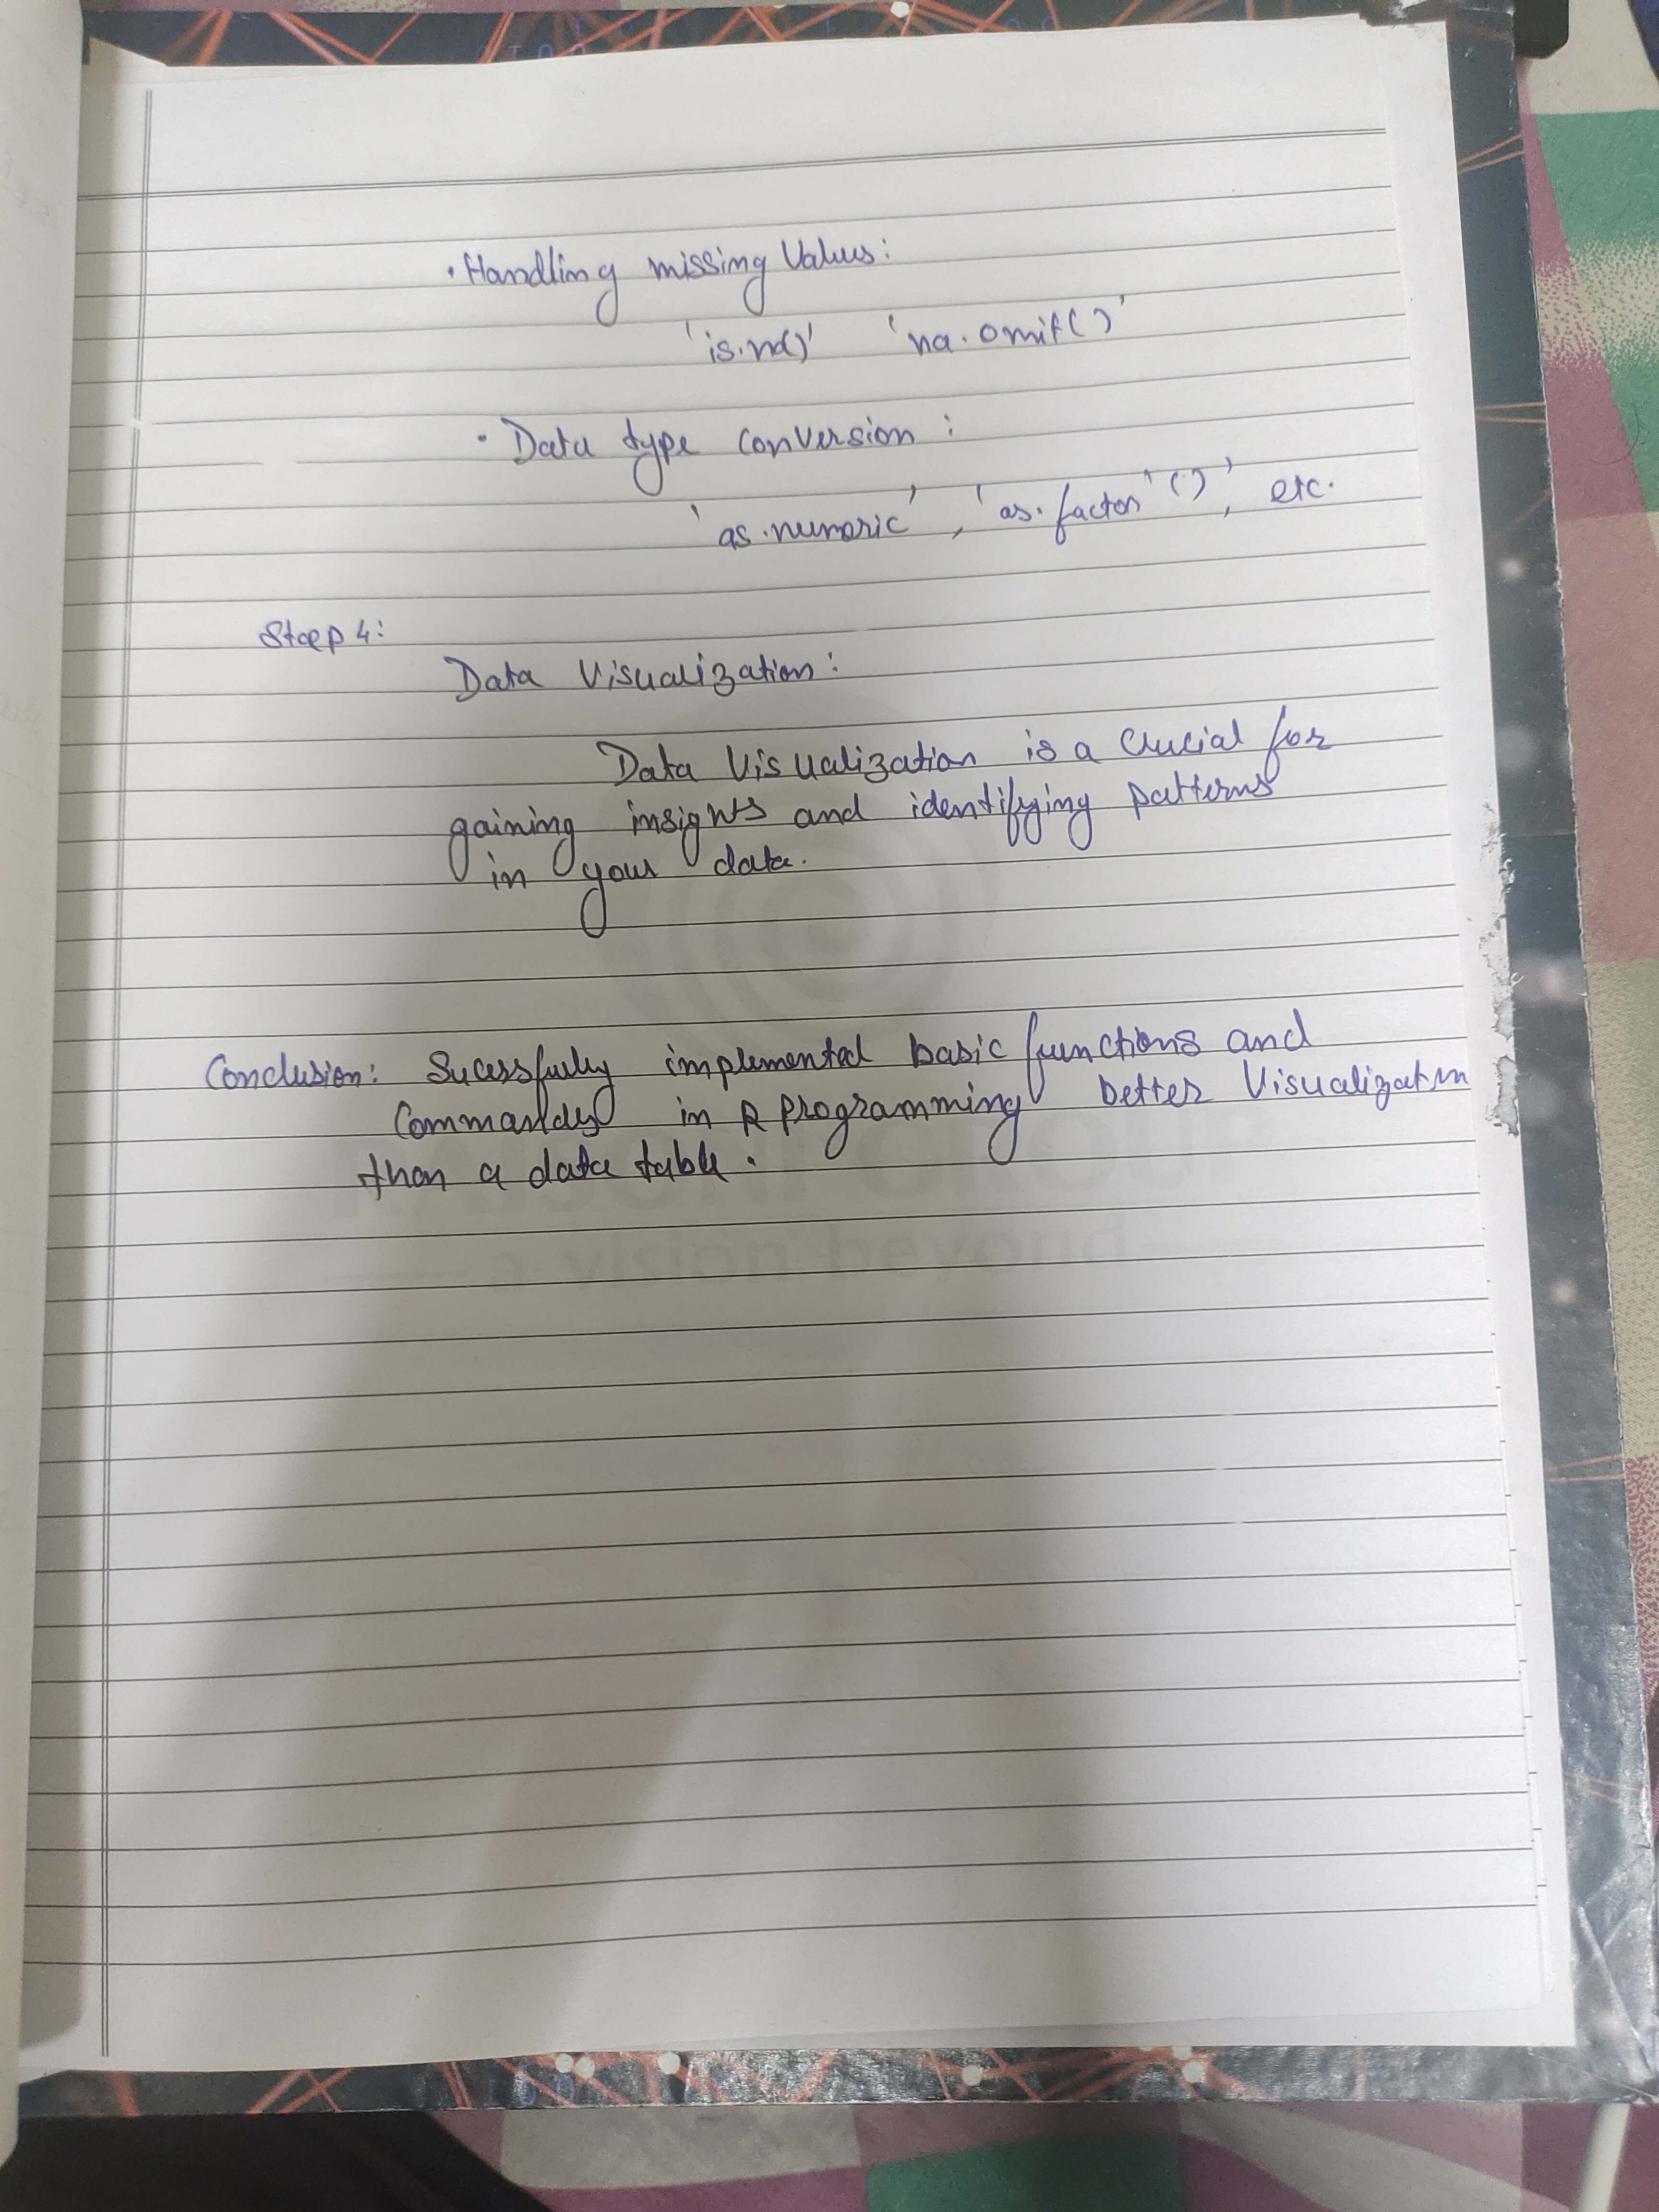 • Handling missing Values:
'is.na()' 'na.omit()'
• Data type conversion :
'as.numeric' , 'as.factor'()', etc.
Step 4:
Data Visualization:
Data Visualization is a Crucial for
gaining insights and identifying patterns
in your data.
Conclusion: Sucessfully implemented basic functions and
Commands in R programming better Visualization
than a data table.
GROUP
a vision beyond